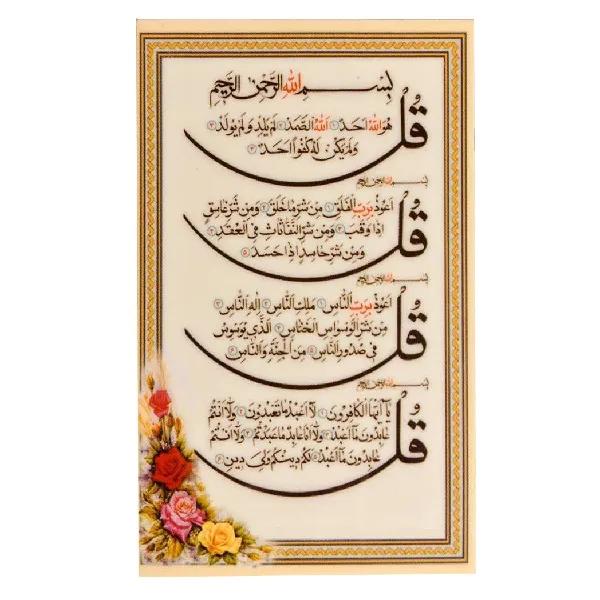 بِسْمِ اللهِ الرَّحْمنِ الرَّحیمِ
قُلْ هُوَ اللهُ اَحَدٌ ۱ اَللهُ الصَّمَدُ ۲ لَمْ یَلِدْ وَ لَمْ یُولَدْ ۳
وَ لَمْ یَکُنْ لَهُ کُفُوًا اَحَدٌ ۴
بِسْمِ اللهِ الرَّحْمنِ الرَّحیمِ
قُلْ اَعُوذُ بِرَبِّ الْفَلَقِ ۱ مِنْ شَرِّ مَا خَلَقَ ۲ وَ مِنْ شَرِّ غَاسِقٍ
اِذَا وَقَبَ ۳ وَ مِنْ شَرِّ النَّفَّاثَاتِ فِی الْعُقَدِ ۴
وَ مِنْ شَرِّ حَاسِدٍ اِذَا حَسَدَ ۵
بِسْمِ اللهِ الرَّحْمنِ الرَّحیمِ
قُلْ اَعُوذُ بِرَبِّ النَّاسِ ۱ مَلِكِ النَّاسِ ۲ اِلٰهِ النَّاسِ ۳
مِنْ شَرِّ الْوَسْوَاسِ الْخَنَّاسِ ۴ اَلَّذِی یُوَسْوِسُ
فِی صُدُورِ النَّاسِ ۵ مِنَ الْجِنَّةِ وَ النَّاسِ ۶
بِسْمِ اللهِ الرَّحْمنِ الرَّحیمِ
قُلْ یَا اَیُّهَا الْکَافِرُونَ ۱ لَا اَعْبُدُ مَا تَعْبُدُونَ ۲ وَ لَا اَنْتُمْ
عَابِدُونَ مَا اَعْبُدُ ۳ وَ لَا اَنَا عَابِدٌ مَا عَبَدْتُمْ ۴ وَ لَا اَنْتُمْ
عَابِدُونَ مَا اَعْبُدُ ۵ لَکُمْ دِینُکُمْ وَلِیَ دِینِ ۶